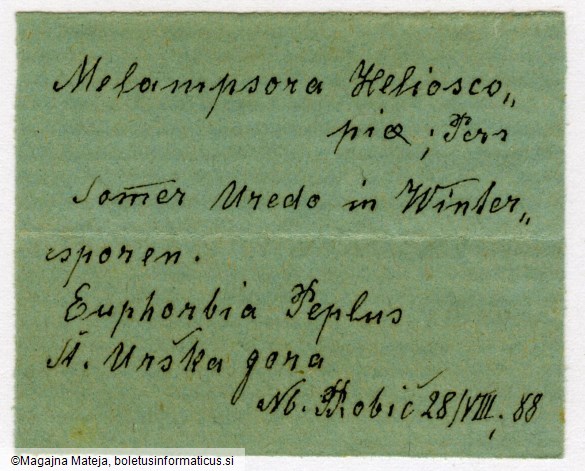 Melampsora Heliosco„
piæ, Pers
Som̅er Uredo in Winter„
sporen.
Euphorbia Peplus
St. Urška gora
Robič 28/VIII, 88
©Magajna Mateja, boletusinformaticus.si